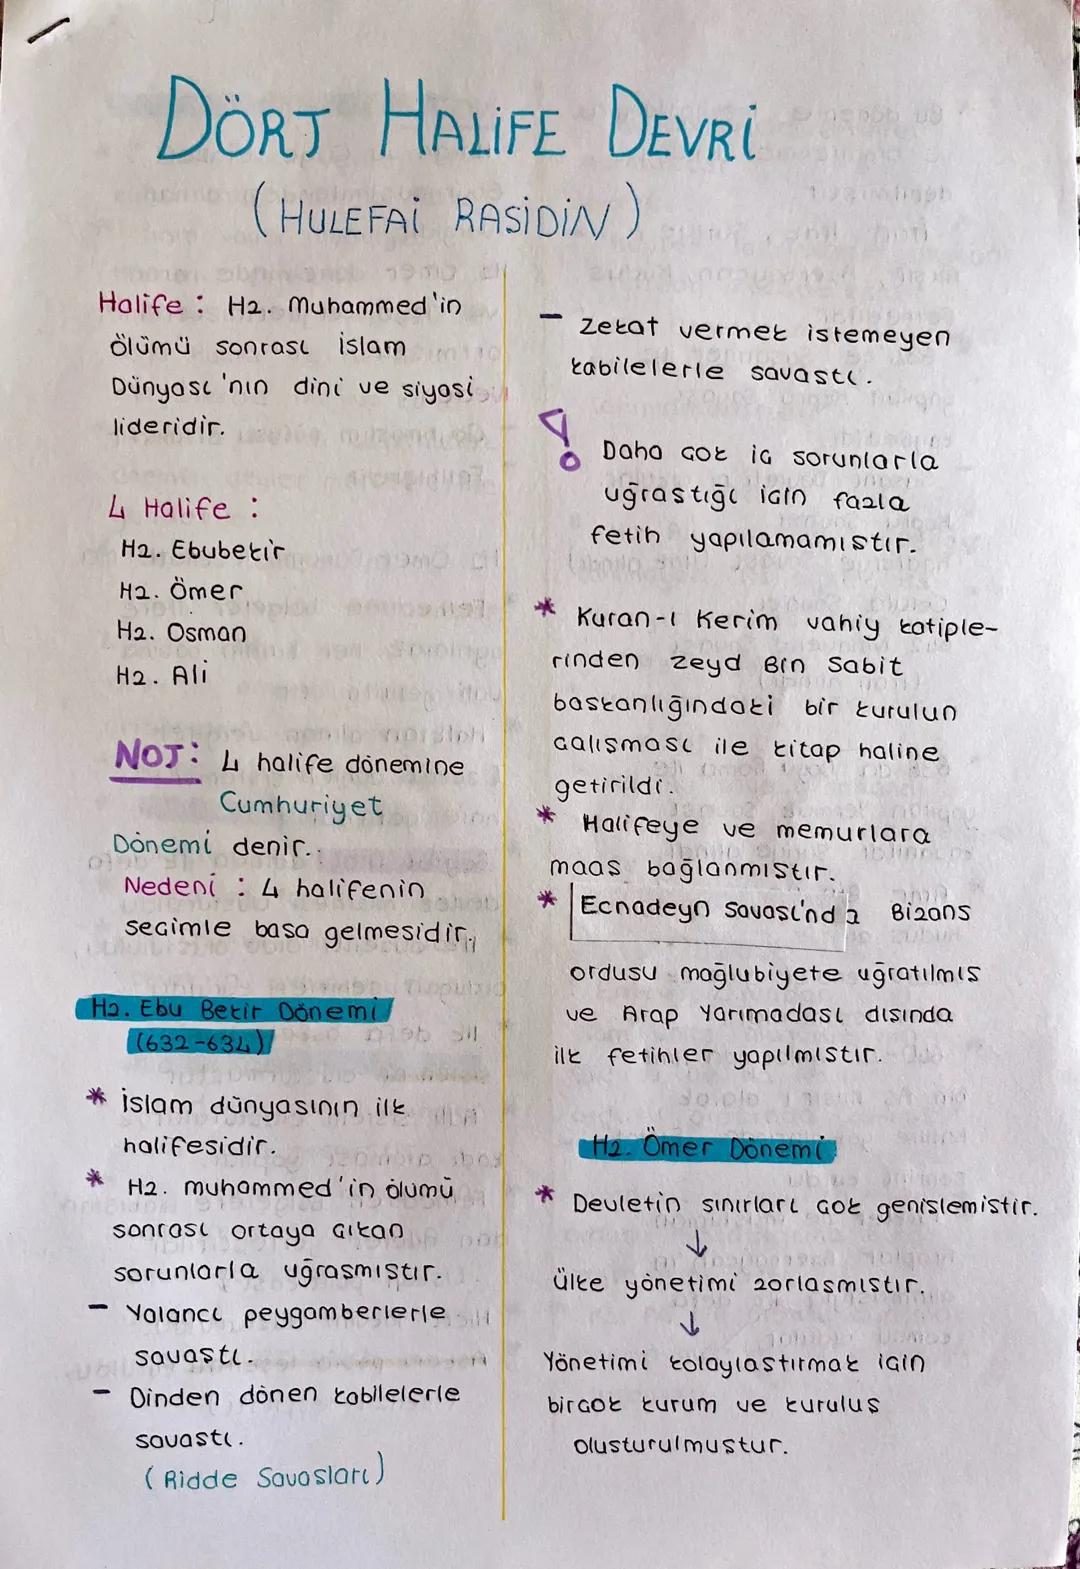 DÖRT HALİFE DEVRİ
(HULEFAİ RASİDİN)
Halife : Hz. Muhammed'in
ölümü sonrası İslam
Dünyası'nın dini ve siyasi
lideridir.
4 Halife :
Hz. Ebubekir
Hz. Ömer
Hz. Osman
Hz. Ali
NOT: 4 halife dönemine
Cumhuriyet
Dönemi denir.
Nedeni : 4 halifenin
secimle basa gelmesidir.
Hz. Ebu Bekir Dönemi
(632-634)
* İslam dünyasının ilk
halifesidir.
* Hz. muhammed'in ölümü
sonrası ortaya cıkan
sorunlarla uğrasmıstır.
- Yalancı peygamberlerle
savaştı.
- Dinden dönen kabilelerle
savastı.
(Ridde Savasları)
- Zekat vermek istemeyen
kabilelerle savastı.
! Daha cok ic sorunlarla
uğrastığı icin fazla
fetih yapılamamıstır.
* Kuran-ı Kerim vahiy katiple-
rinden Zeyd Bin Sabit
baskanlığındaki bir kurulun
calısması ile kitap haline
getirildi.
* Halifeye ve memurlara
maas bağlanmıstır.
* Ecnadeyn Savası'nda Bizans
ordusu mağlubiyete uğratılmıs
ve Arap Yarımadası dısında
ilk fetihler yapılmıstır.
Hz. Ömer Dönemi
* Devletin sınırları cok genislemistir.
↓
Ülke yönetimi zorlasmıstır.
↓
Yönetimi kolaylastırmak icin
bircok kurum ve kuruluş
olusturulmustur.